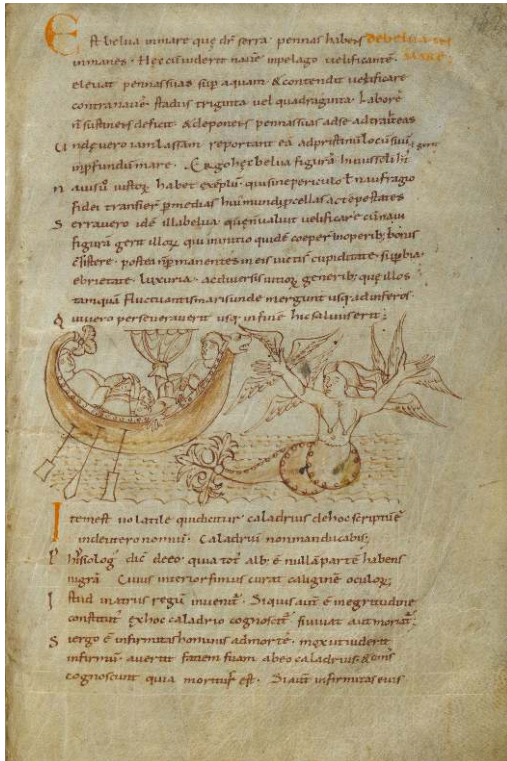 Est belua in mare quę dr̄ serra pennas habens de belua in
inmanes. Hęc cū viderit navē inpelago velificantē mare.
elevat pennas suas sup aquam & contendit velificare
contra navē stadiis triginta vel quadraginta. Laborē
ñ sustinens deficit & deponens pennas suas ad se adtrait eas
Unde vero iam lassam reportant eā ad pristinū locū suū
inpfundū mare. Ergo hęc belua figurā huius sęli
navis ū iustoꝝ habet exēplū qui sine periculo naufragio
fidei transier p medias hui mundi pcellas ac tēpestates
Serra vero idē illa belua quę ñ valuit velificare cū navi
figurā gerit illoꝝ qui in initio quidē coeper in operib; bonis
c̄sistere. postea ñ pmanentes in eis victi cupiditate. supbia.
ebrietate. luxuria. ac diversis vitioꝝ generib; quę illos
tamquā fluctuantis maris undę mergunt usq; ad inferos.
Qui vero perseveraverit usq; in finē hic salvus erit;
Item est volatile qui dicitur caladrius de hoc scriptū ē
in deuteronomiū. Caladriū non manducabis;
Phisiolog dic̄ de eo. quia tot alb; ē nullā partē habens
nigrā Cuius interior fimus curat caliginē oculoꝝ;
Istud in atriis regū invenit. Si quis aut ē in egritudine
constitut ex hoc caladrio cognoscit si vivat aut moriat;
Si ergo ē infirmitas hominis ad mortē. mox ut viderit
infirmū avertit faciem suam ab eo caladrius. & om̄s
cognoscunt quia moritur est. Si aut infirmitas eius